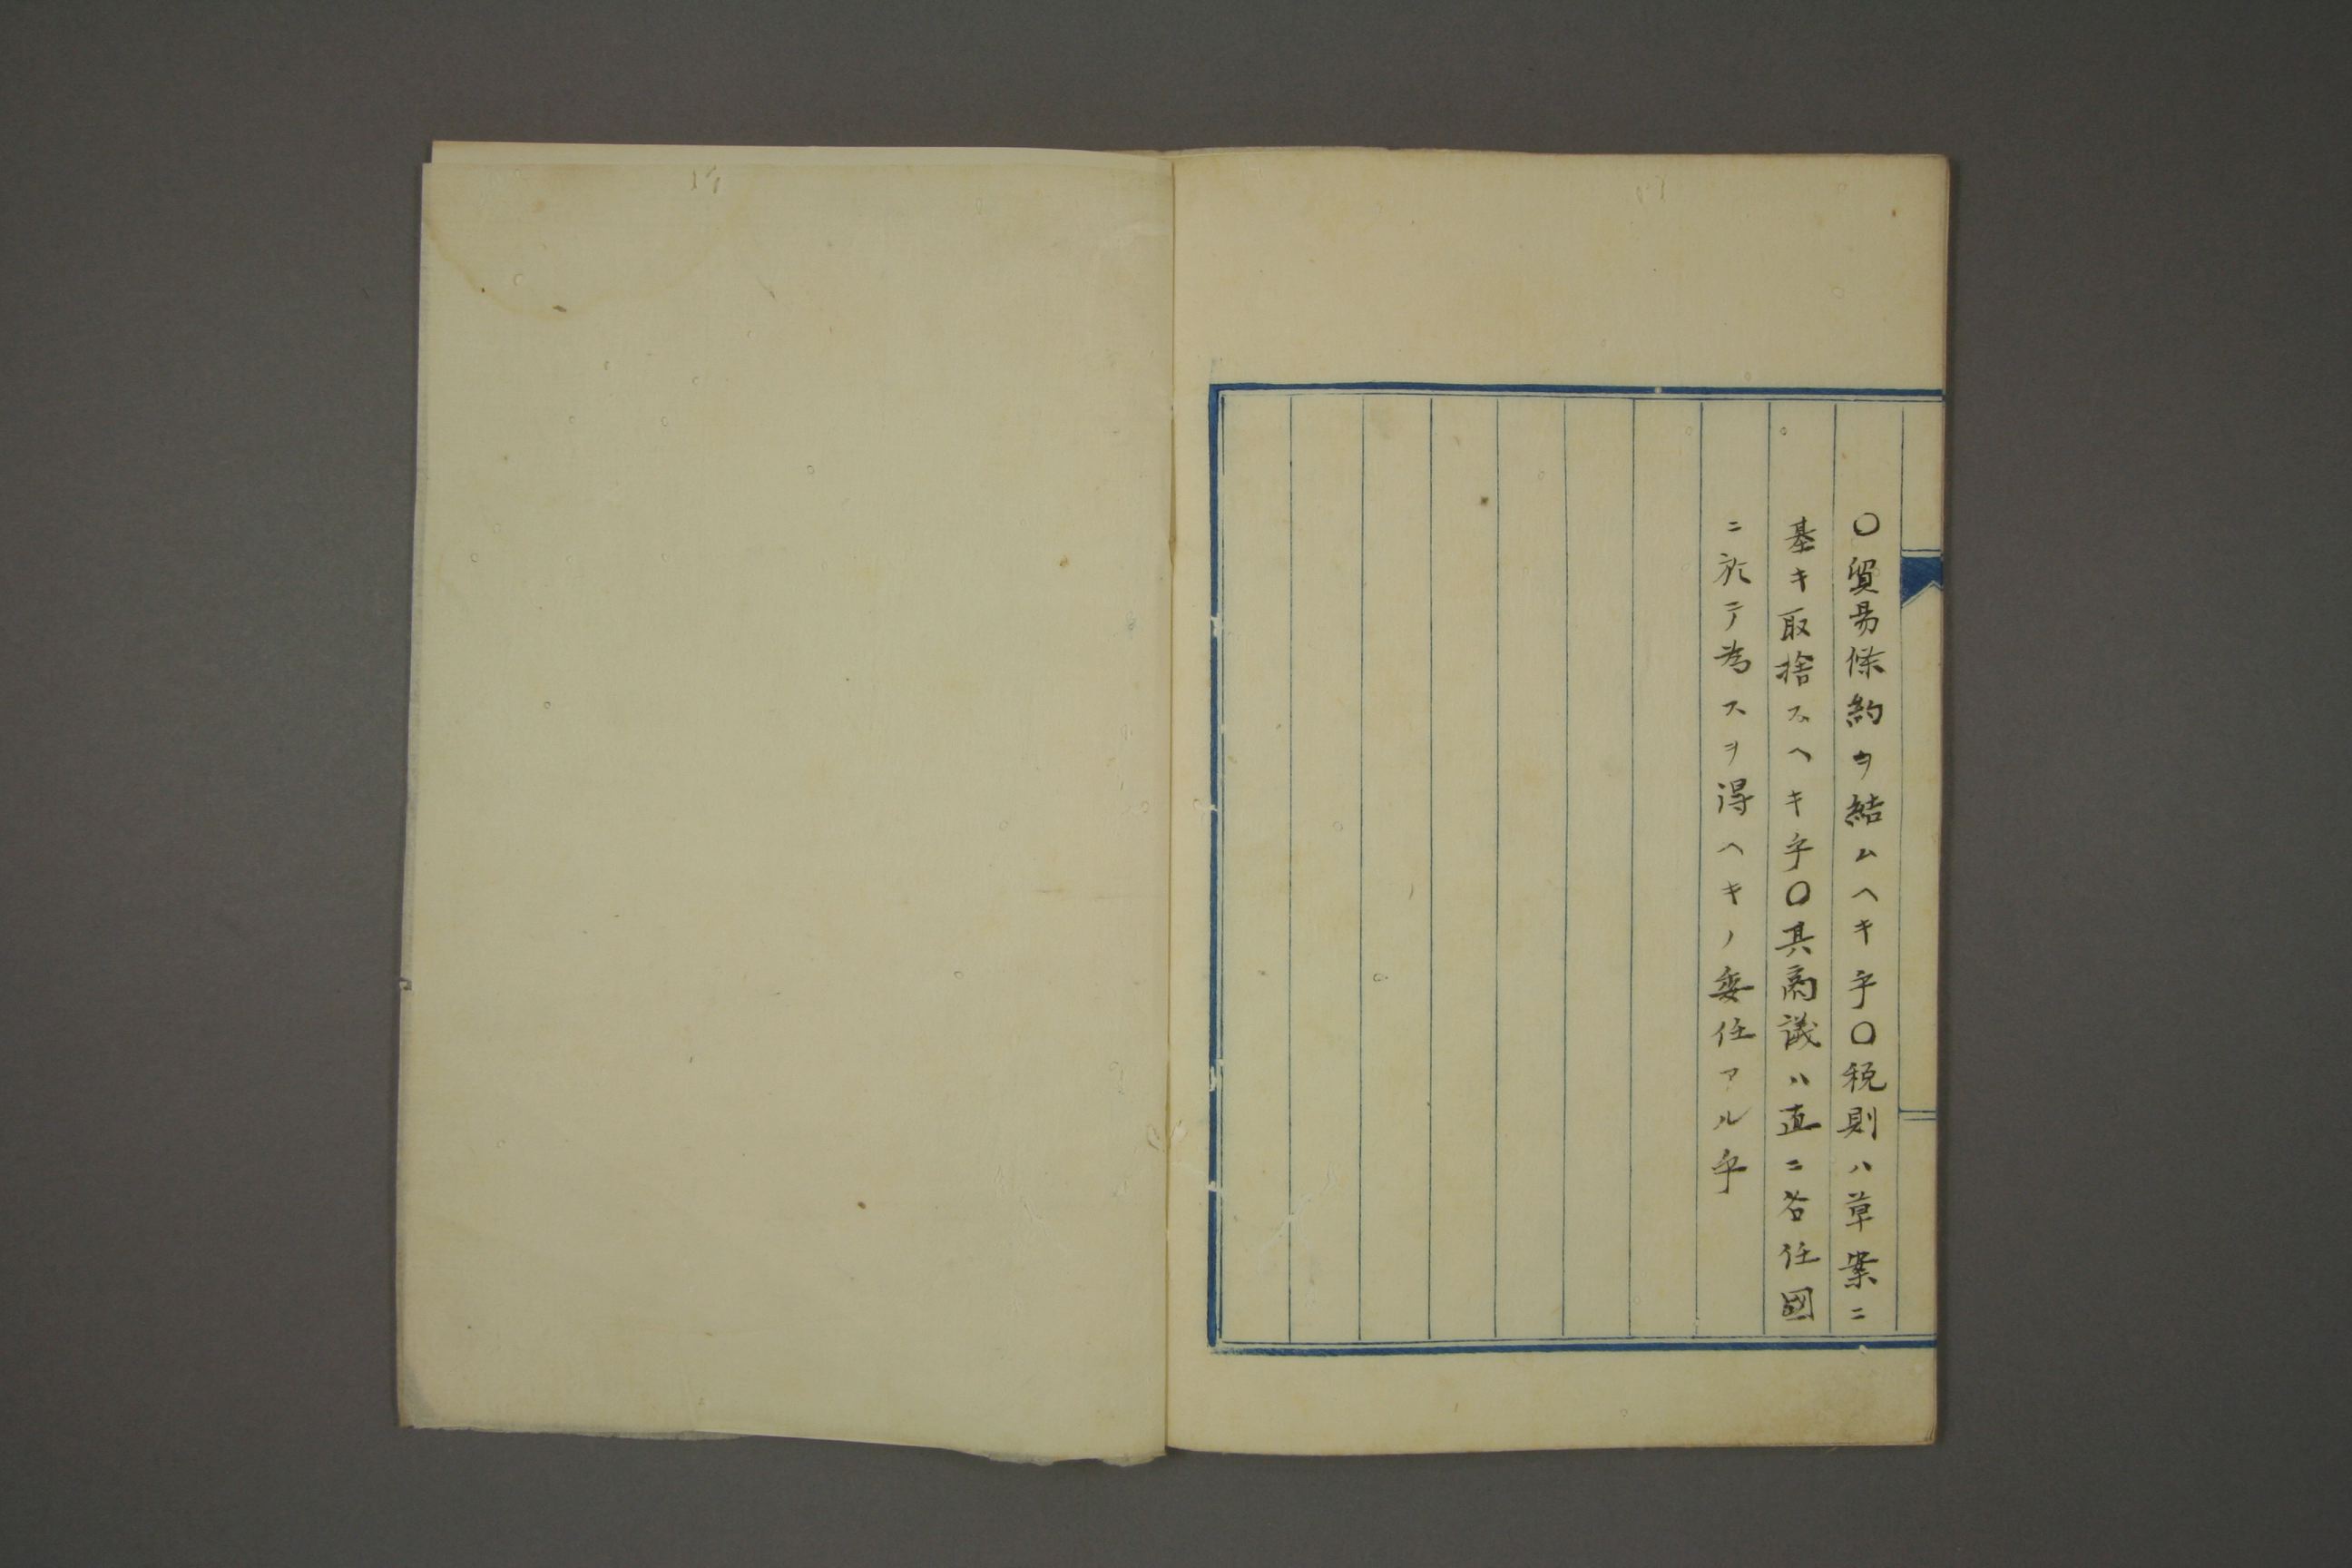 〇貿易條約ヲ結ムヘキ乎〇税則ハ草案ニ
基キ取捨スヘキ乎〇其商議ハ直ニ各任國
ニ於テ為スヲ得ヘキノ委任アル乎